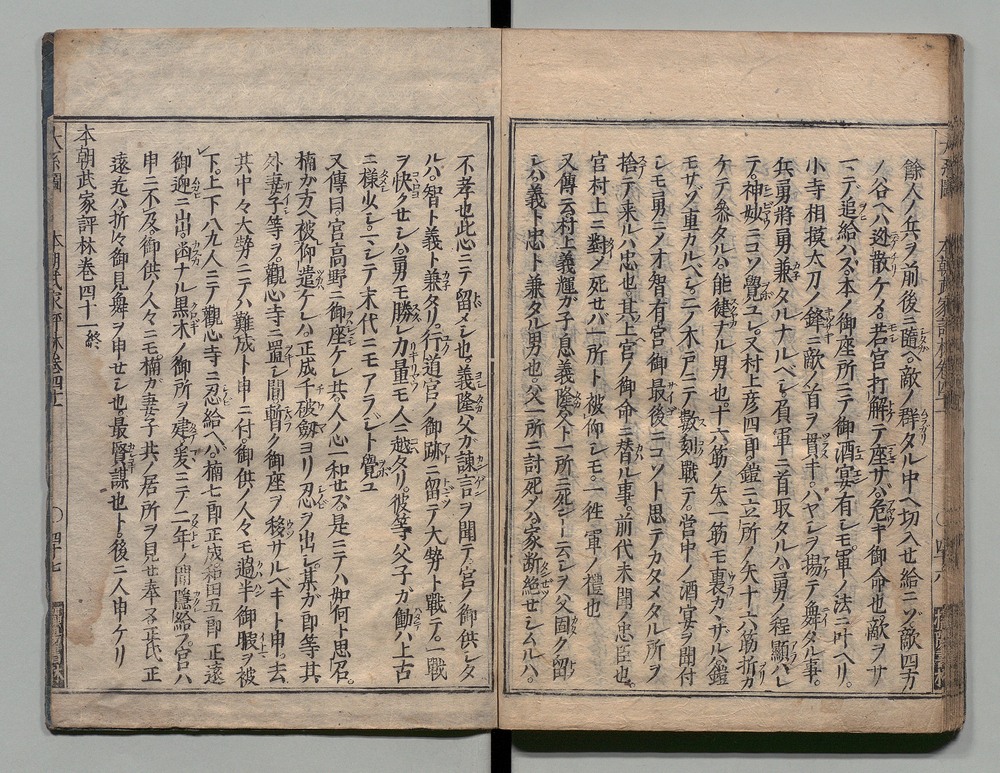 餘人ノ兵ヲ前後ニ隨ヘ敵ノ群タル中ヘ切入セ給ニゾ敵四方
ノ谷ヘハ逃散ケル。若宮打解テ座サバ危キ御命也敵ヲサ
マデ追給ハズ本ノ御座所ニテ御酒宴有シモ軍ノ法ニ叶ヘリ。
小寺相摸太刀ノ鋒ニ敵ノ首ヲ貫キハヤシヲ揚テ舞タル事。
兵勇將勇ノ兼タルナルベシ。負軍ニ首取タルハ勇ノ程顯ハレ
テ。神妙ニコソ覺ユレ。又村上彦四郎鎧ニ立所ノ矢十六筋折カ
ケテ參タルハ。能健ナル男也。十六筋ノ矢一筋モ裏カヽザルハ鎧
モサゾ重カルベシ。ニノ木戸ニテ數刻戰テ。営中ノ酒宴ヲ聞付
シモ勇ニメ才智有宮御最後ニコソト思テカタメタル所ヲ
捨テ来ルハ忠也其上宮ノ御命ニ替ル事。前代未聞ノ忠臣也。
宮村上ニ對メ死セバ一所ト被仰シモ。一件軍ノ禮也
又傳云村上義輝ガ子息義隆父ト一所ニ死ナント云シヲ父固ク留
シハ義ト忠ト兼タル男也。父一所ニ討死ノハ家斷絶セシムルハ。
不孝也此心ニテ留メシ也。義隆父ガ諫言ヲ聞テ。宮ノ御供シタ
ルハ智ト義ト兼タリ。行道宮ノ御跡ニ留テ大勢ト戰テ。一戰
ヲ快クセシハ勇モ勝レ力量モ人ニ越タリ。彼等父子ガ働ハ上古
ニ様少シ。マシテ末代ニモアラジト覺ユ
又傳曰。宮高野ニ御座ケレ共。人ノ心一和セズ。是ニテハ如何ト思召。
楠ガ方ヘ被仰遣ケレバ。正成千破劔ヨリ忍ヲ出シ。某ガ郎等其
外妻子等ヲ。觀心寺ニ置シ間暫ク御座ヲ移サルベキト申。去
共中々大勢ニテハ難成ト申ニ付。御供ノ人々モ過半御暇ヲ被
下。上下八九人ニテ觀心寺ニ忍給ヘバ。楠七郎正成和田五郎正遠
御迎ニ出。幽ナル黒木ノ御所ヲ建。爰ニテ二年ノ間隱給フ。宮ハ
申ニ不及。御供ノ人々ニモ。楠ガ妻子共ノ居所ヲ見セ奉ラズ。正氏正
遠迄ハ折々御見舞ヲ申セシ也。最賢謀也ト。後ニ人申ケリ
本朝武家評林卷四十一終
大系圖 本朝武家評林卷四十一 四十七